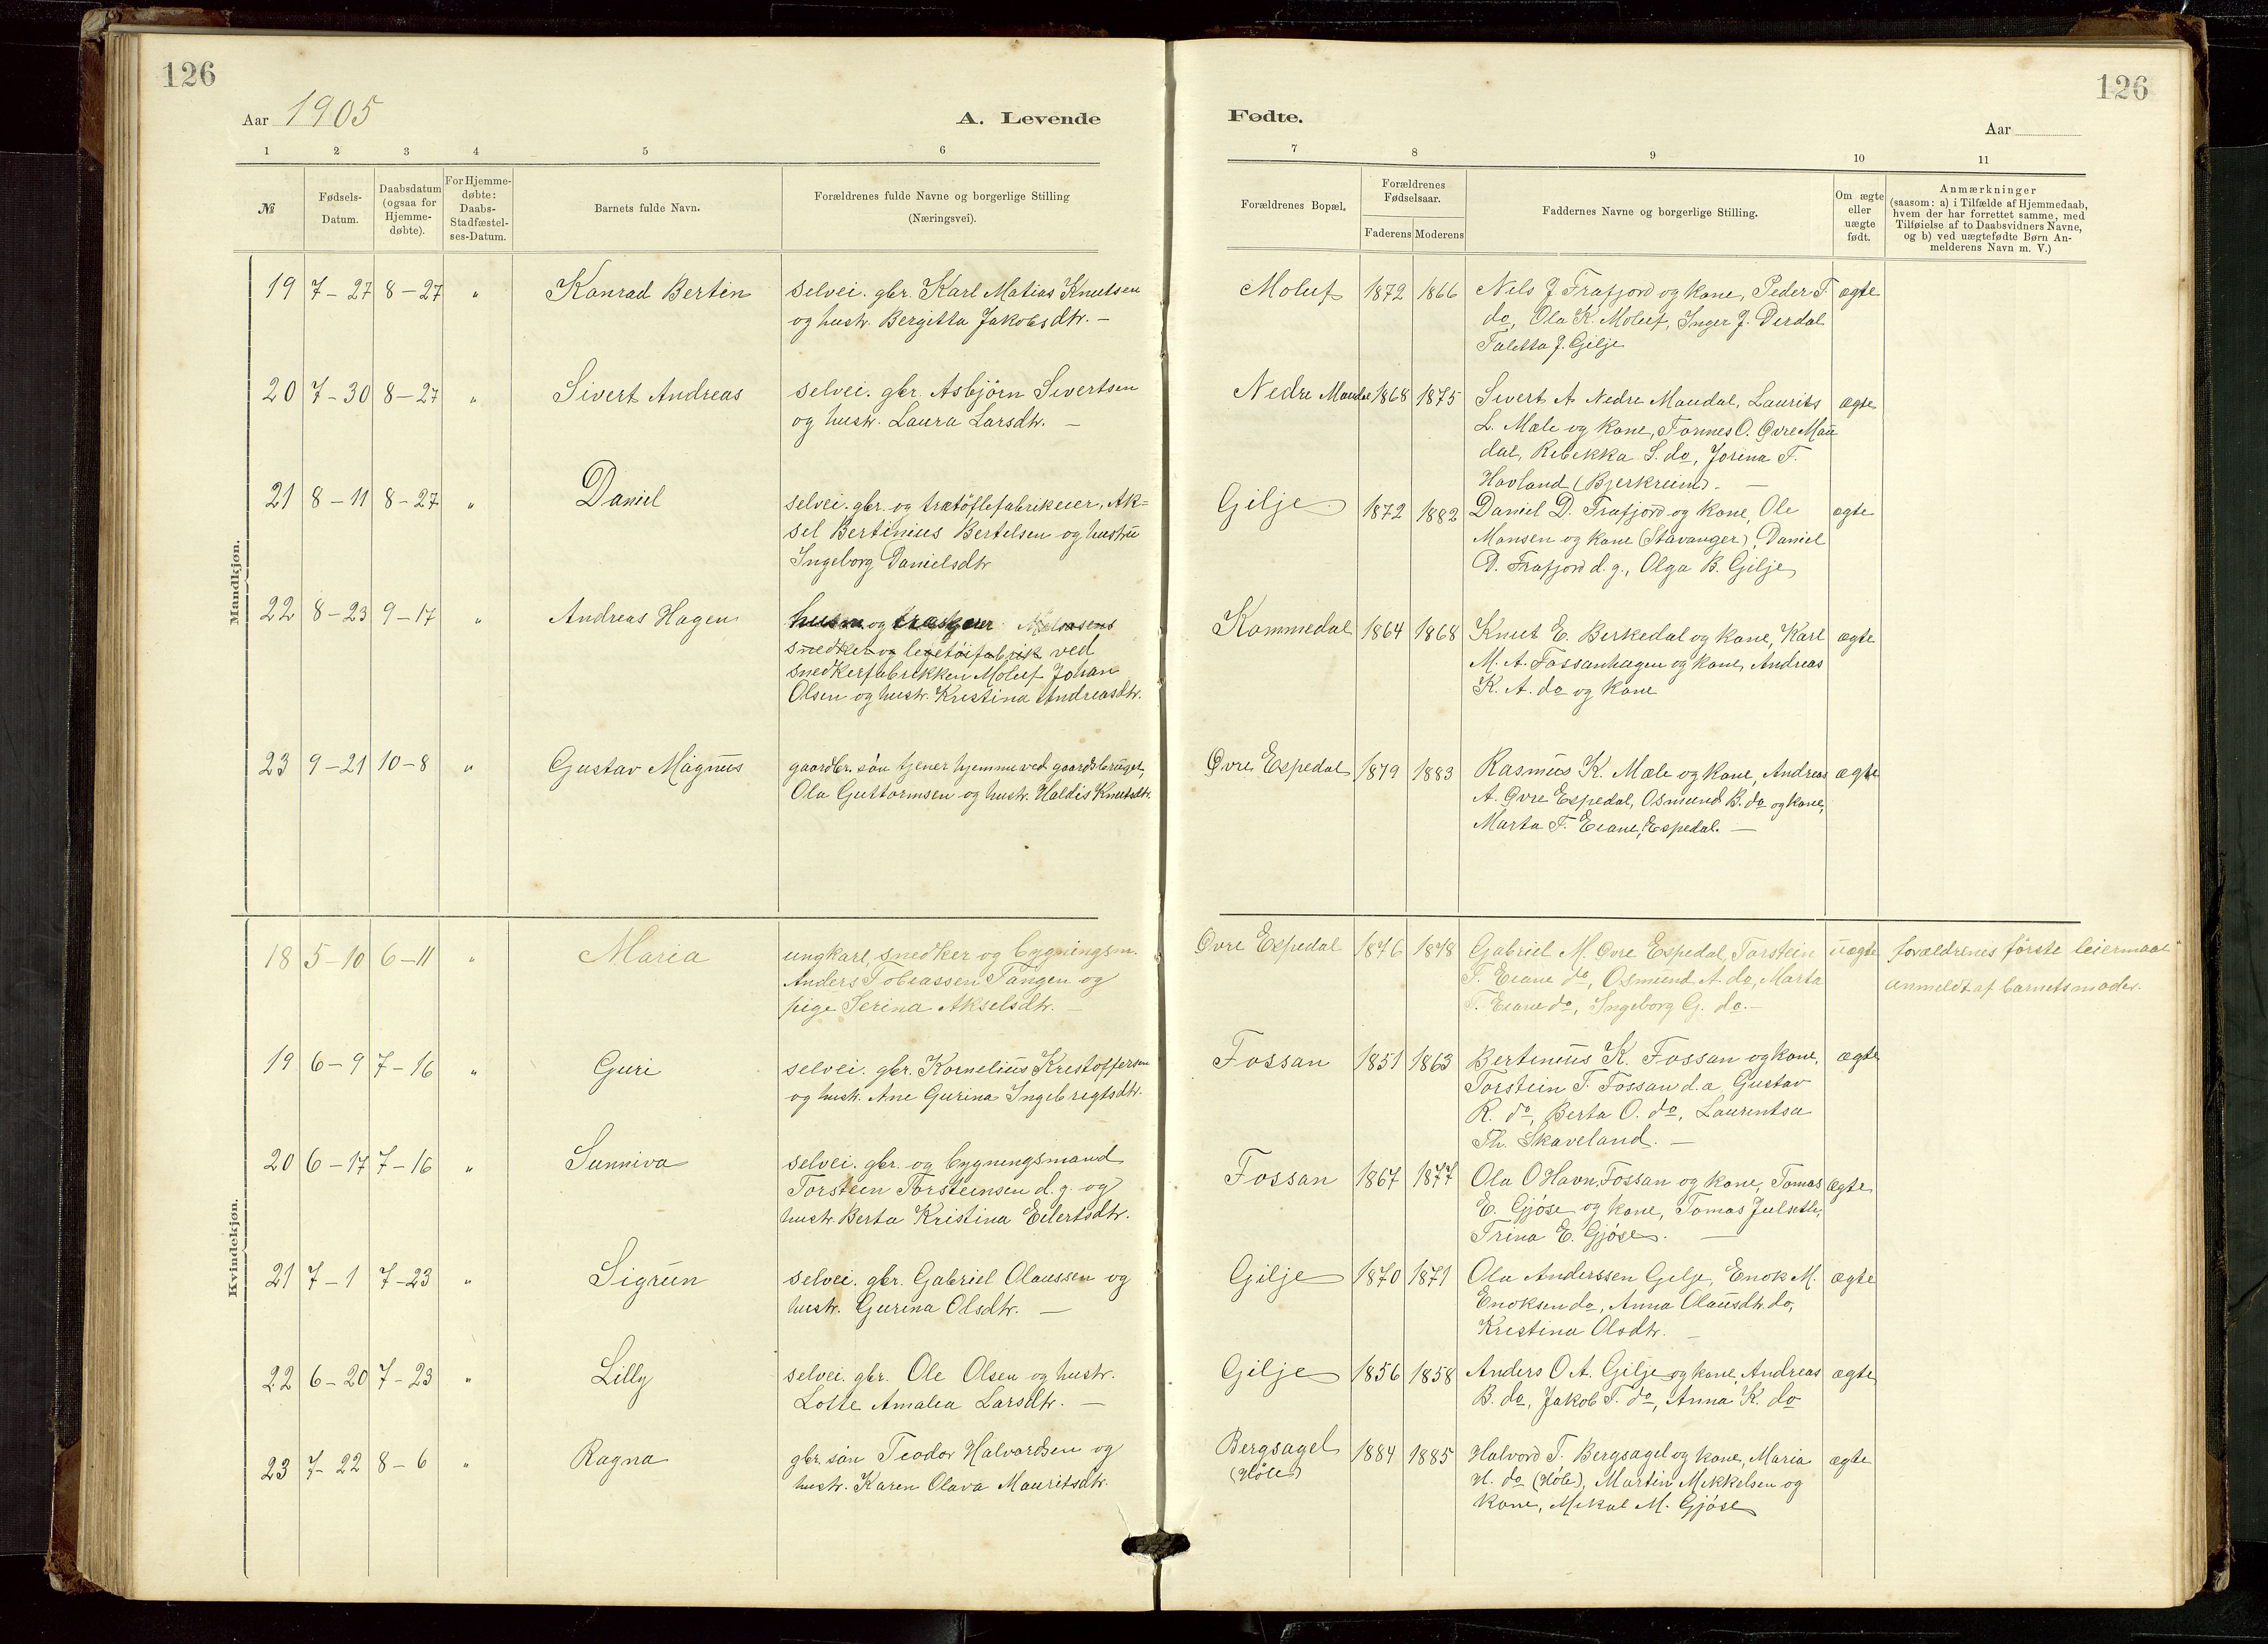 126
126
Aar 1905
A. Levende
Fødte.
Aar
1 2 3 4 5 6
7 8 9 10 11
№
Fødsels-
Datum.
Daabsdatum
(ogsaa for
Hjemme-
døbte).
For Hjemme-
døbte:
Daabs-
Stadfæstel-
ses-Datum.
Barnets fulde Navn.
Forældrenes fulde Navne og borgerlige Stilling
(Næringsvei).
Forældrenes Bopæl.
Forældrenes
Fødselsaar.
Faderens Moderens
Faddernes Navne og borgerlige Stilling.
Om ægte
eller
uægte
født.
Anmærkninger
(saasom: a) i Tilfælde af Hjemmedaab,
hvem der har forrettet samme, med
Tilføielse af to Daabsvidners Navne,
og b) ved uægtefødte Børn An-
melderens Navn m. V.)
Mandkjøn.
19 7-27 8-27 " Konrad Bertin
selvei. gbr. Karl Matias Knutsen
og hustr. Bergitta Jakobsdtr. —
Moluf 1872 1866
Nels J. Frafjord og kone, Peder T.
do, Ola K. Moluf, Inger J. Dirdal
Taletta J. Gilje
ægte
20 7-30 8-27 " Sivert Andreas
selvei. gbr. Asbjörn Sivertsen
og hustr. Laura Larsdtr. —
Nedre Maudal 1868 1875
Sivert A Nedre Maudal, Laurits
L. Mæle og kone, Tønnes O. Øvre Mau
dal, Rebekka S. do, Jorina T.
Havland (Bjerkreim). —
ægte
21 8-11 8-27 " Daniel
selvei. gbr. og trætöflefabrikeier, Ak=
sel Bertinius Bertelsen og hustru
Ingeborg Danielsdtr
Gilje 1872 1882
Daniel D. Frafjord og kone, Ole
Monsen og kone (Stavanger), Daniel
D. Frafjord d.g., Olga B. Gilje
ægte
22 8-23 9-17 " Andreas Hagen
og
snedker og legetöifabrik ved
snedkerfabrikken Moluf Johan
Olsen og hustr. Kristina Andreasdtr.
Kommedal 1864 1868
Knut E. Birkedal og kone, Karl
M. A. Fossanhagen og kone, Andreas
K. A. do og kone
ægte
23 9-21 10-8 " Gustav Magnus
gaardbr. sön tjener hjemme ved gaardsbruget,
Ola Guttormsen og hustr. Haldis Knutsdtr.
Øvre Espedal 1879 1883
Rasmus K. Mæle og kone, Andreas
A. Øvre Espedal, Osmund B. do og kone,
Marta T. Eiane, Espedal. —
ægte
Kvindekjøn.
18 5-10 6-11 " Maria
ungkarl, snedker og bygningsm.
Anders Tobiassen Tangen og
pige Serina Akselsdtr. —
Øvre Espedal 1876 1878
Gabriel M. Øvre Espedal, Torstein
T. Eiane do, Osmund A. do, Marta
T. Eiane do, Ingeborg G. do. —
uægte
forældrenes förste leiermaal
anmeldt af barnets moder.
19 6-9 7-16 " Guri
selvei. gbr. Kornelius Kristoffersen
og hustr. Ane Gurina Ingebregtsdtr.
Fossan 1851 1863
Bertinius K. Fossan og kone,
Torstein T. Fossan d.æ, Gustav
R. do, Berta O. do, Laurentsa
Th. Skaveland. —
ægte
20 6-17 7-16 " Sunniva
selvei. gbr. og bygningsmand
Torstein Torsteinsen d.y. og
hustr. Berta Kristina Eilertsdtr.
Fossan 1867 1877
Ola O Havn, Fossan og kone, Tomas
E. Gjöse og kone, Tomas Julseth,
Trina E. Gjöse. —
ægte
21 7-1 7-23 " Sigrun
selvei. gbr. Gabriel Olaussen og
hustr. Gurina Olsdtr. —
Gilje 1870 1871
Ola Anderssen Gilje, Enok M.
Enoksen do, Anna Olausdtr. do,
Kristina Olsdtr. —
ægte
22 6-20 7-23 " Lilly
selvei. gbr. Ole Olsen og hustr.
Lotte Amalia Larsdtr. —
Gilje 1856 1858
Anders O. A. Gilje og kone, Andreas
B. do, Jakob T. do, Anna K. do
ægte
23 7-22 8-6 " Ragna
gbr. sön Teodor Halvordsen og
hustr. Karen Olava Mauritsdtr.
Bergsagel
(Höle)
1884 1885
Halvord T. Bergsagel og kone, Maria
H. do (Höle), Martin Mikkelsen og
kone, Mikal M. Gjöse
ægte